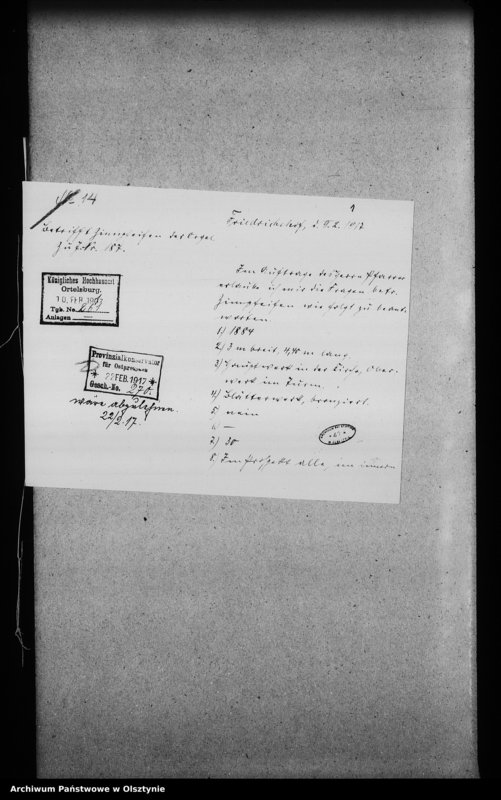 14
1
Friedrichshof, d. 9.2.1917
Betrifft Zinnpfeifen der Orgel
zu J.Nr. 187.
Im Auftrage des Herrn Pfarrer
erlaube ich mir die Fragen betr.
Zinnpfeifen wie folgt zu beant-
worten.
1) 1884
2) 3 m breit, 4,40 m lang.
3) Hauptwerk in der Kirche, Ober-
werk im Turm.
4) Blätterwerk, bronziert.
5) nein
6 —
7) 30
8. Im Prospekt alle, im innern
Königliches Hochbauamt
Ortelsburg.
10. FEB. 1917
Tgb. No.
Anlagen
Provinzialkonservator
für Ostpreussen
22 FEB. 1917
Gesch.-No. 270.
wäre abzulehnen.
22/2.17.
Archiwum Państwowe w Olsztynie